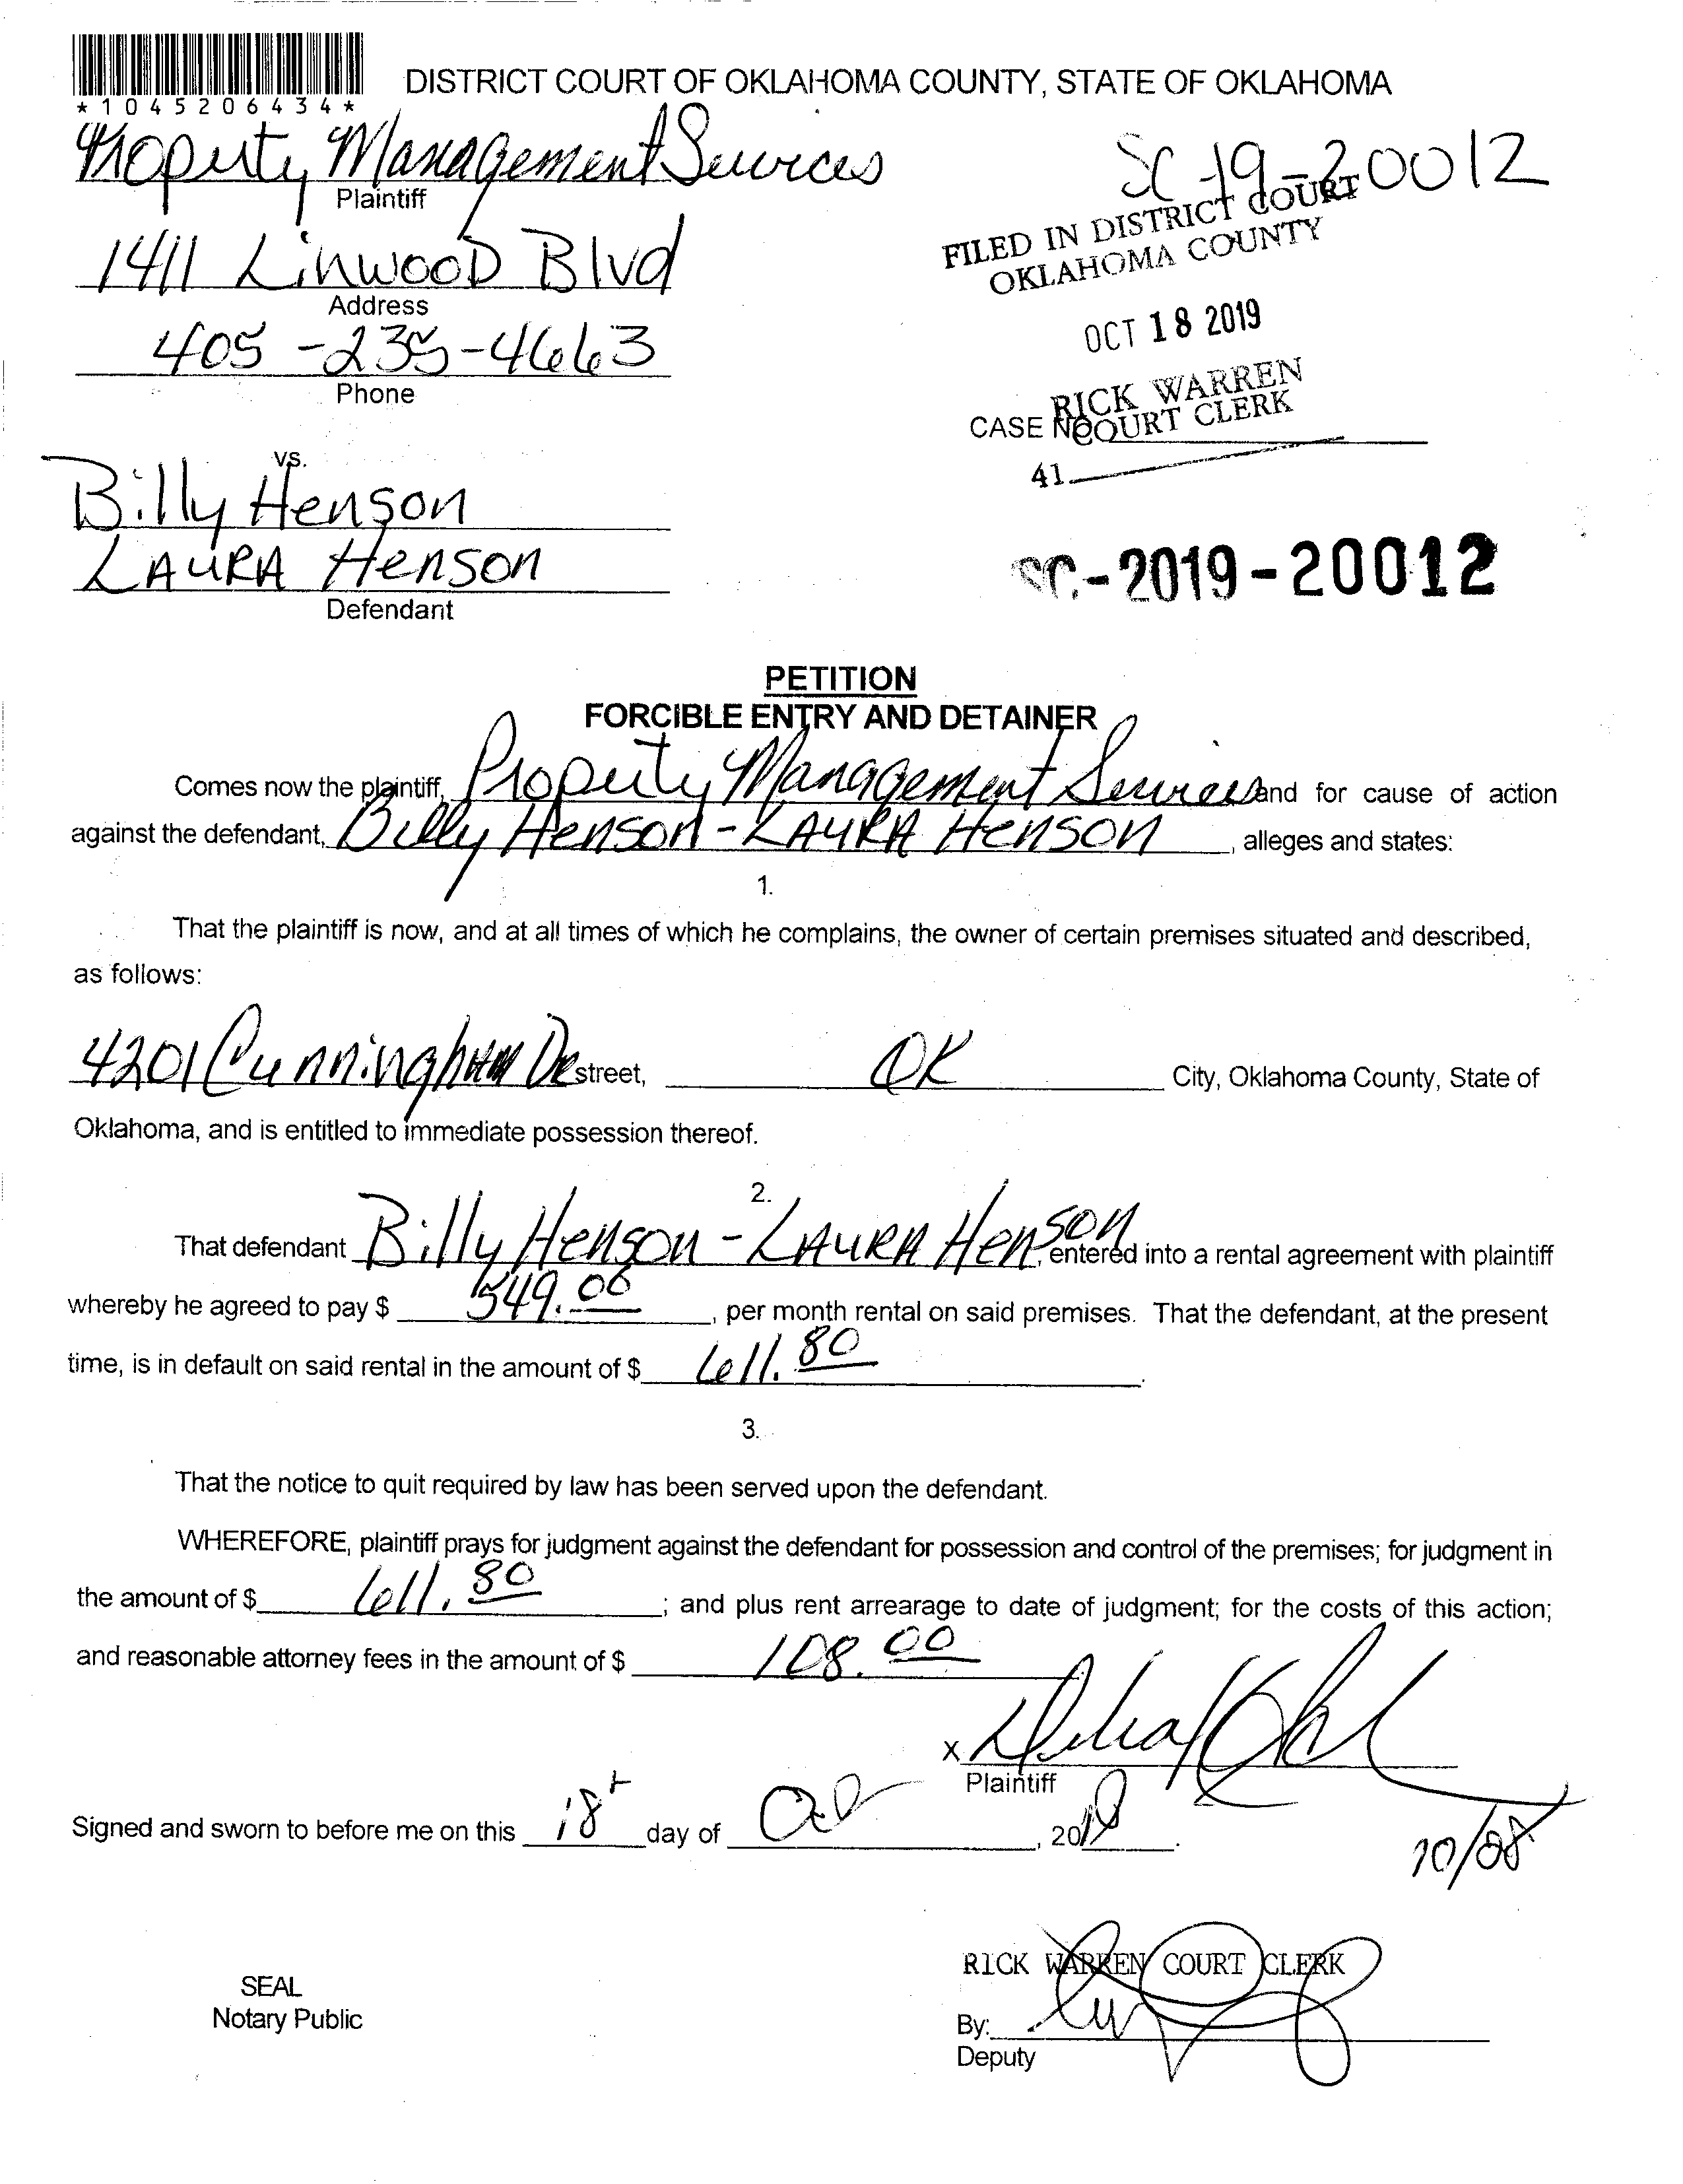 *1045206434*
DISTRICT COURT OF OKLAHOMA COUNTY, STATE OF OKLAHOMA
Property Management Services
Plaintiff
SC-19-20012
1411 Linwood Blvd
Address
FILED IN DISTRICT COURT
OKLAHOMA COUNTY
405-235-4663
Phone
OCT 18 2019
RICK WARREN
COURT CLERK
CASE NO
41
vs.
Billy Henson
LAURA Henson
Defendant
SC-2019-20012
PETITION
FORCIBLE ENTRY AND DETAINER
Comes now the plaintiff, Property Management Services and for cause of action
against the defendant, Billy Henson - LAURA Henson, alleges and states:
1.
That the plaintiff is now, and at all times of which he complains, the owner of certain premises situated and described,
as follows:
4201 Cunningham DR street, OK City, Oklahoma County, State of
Oklahoma, and is entitled to immediate possession thereof.
2.
That defendant Billy Henson - LAURA Henson, entered into a rental agreement with plaintiff
whereby he agreed to pay $ 549.00, per month rental on said premises. That the defendant, at the present
time, is in default on said rental in the amount of $ 611.80.
3.
That the notice to quit required by law has been served upon the defendant.
WHEREFORE, plaintiff prays for judgment against the defendant for possession and control of the premises; for judgment in
the amount of $ 611.80; and plus rent arrearage to date of judgment; for the costs of this action;
and reasonable attorney fees in the amount of $ 108.00
X
Plaintiff
Signed and sworn to before me on this 18 day of, 2019.
RICK WARREN COURT CLERK
SEAL
Notary Public
By:
Deputy